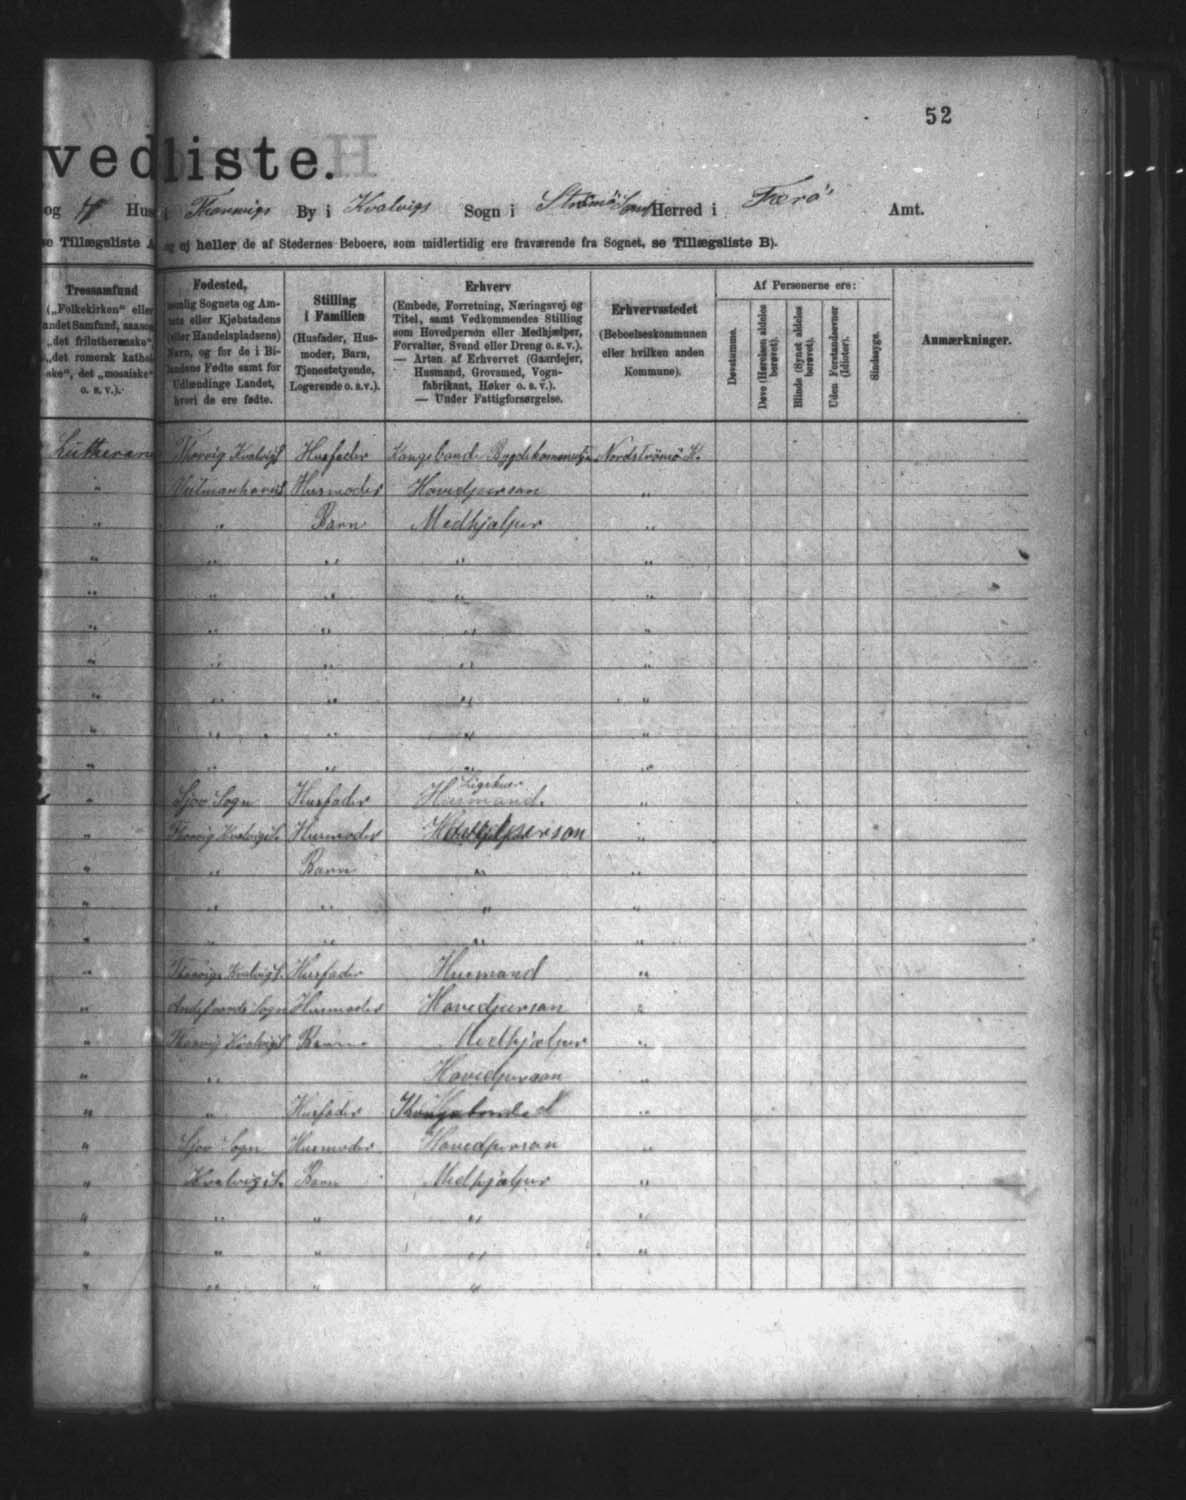 52
vedliste.
og Hus i Thorsvigs By i Kvalvigs Sogn i Strömö Herred i Færö Amt.
se Tillægsliste A og ej heller de af Stedernes Beboere, som midlertidig ere fraværende fra Sognet, se Tillægsliste B).
Trossamfund
(„Folkekirken“ eller
andet Samfund, saasom
„det frilutheranske“,
„det romersk kathol-
ske“, det „mosaiske“
o. s. v.).
Fødested,
nemlig Sognets og Am-
tets eller Kjøbstadens
(eller Handelspladsens)
Navn, og for de i Bi-
landene Fødte samt for
Udlændinge Landet,
hvori de ere fødte.
Stilling
i Familien
(Husfader, Hus-
moder, Barn,
Tjenestetyende,
Logerende o. s. v.).
Erhverv
(Embede, Forretning, Næringsvej og
Titel, samt Vedkommendes Stilling
som Hovedperson eller Medhjælper,
Forvalter, Svend eller Dreng o. s. v.).
— Arten af Erhvervet (Gaardejer,
Husmand, Grovsmed, Vogn-
fabrikant, Høker o. s. v.).
— Under Fattigforsørgelse.
Erhvervsstedet
(Beboelseskommunen
eller hvilken anden
Kommune).
Af Personerne ere:
Døvstumme.
Døve (Hørelsen aldeles
berøvet).
Blinde (Synet aldeles
berøvet).
Uden Forstandsevner
(Idioter).
Sindssyge.
Anmærkninger.
Lutheran Thorvig Kvalvig S Husfader Kongsbonde Nordströmö K.
" Vestmanhavns Husmoder Hovedperson "
" " Barn Medhjælper "
" " " " "
" " " " "
" " " " "
" " " " "
" " " " "
" " " " "
" " " " "
" Sjov Sogn Husfader Husmand. "
" Thorvig Kvalvig S. Husmoder Hovedperson "
" " Barn " "
" " " " "
" " " " "
" Thorvig Kvalvig S. Husfader Husmand "
" Sogn Husmoder Hovedperson "
" Thorvig Kvalvig S Barn Medhjælper "
" " Hovedperson "
" " Husfader Kongsbonde "
" Sjov Sogn Husmoder Hovedperson "
" Kvalvig S. Barn Medhjælper "
" " " " "
" " " " "
" " " "